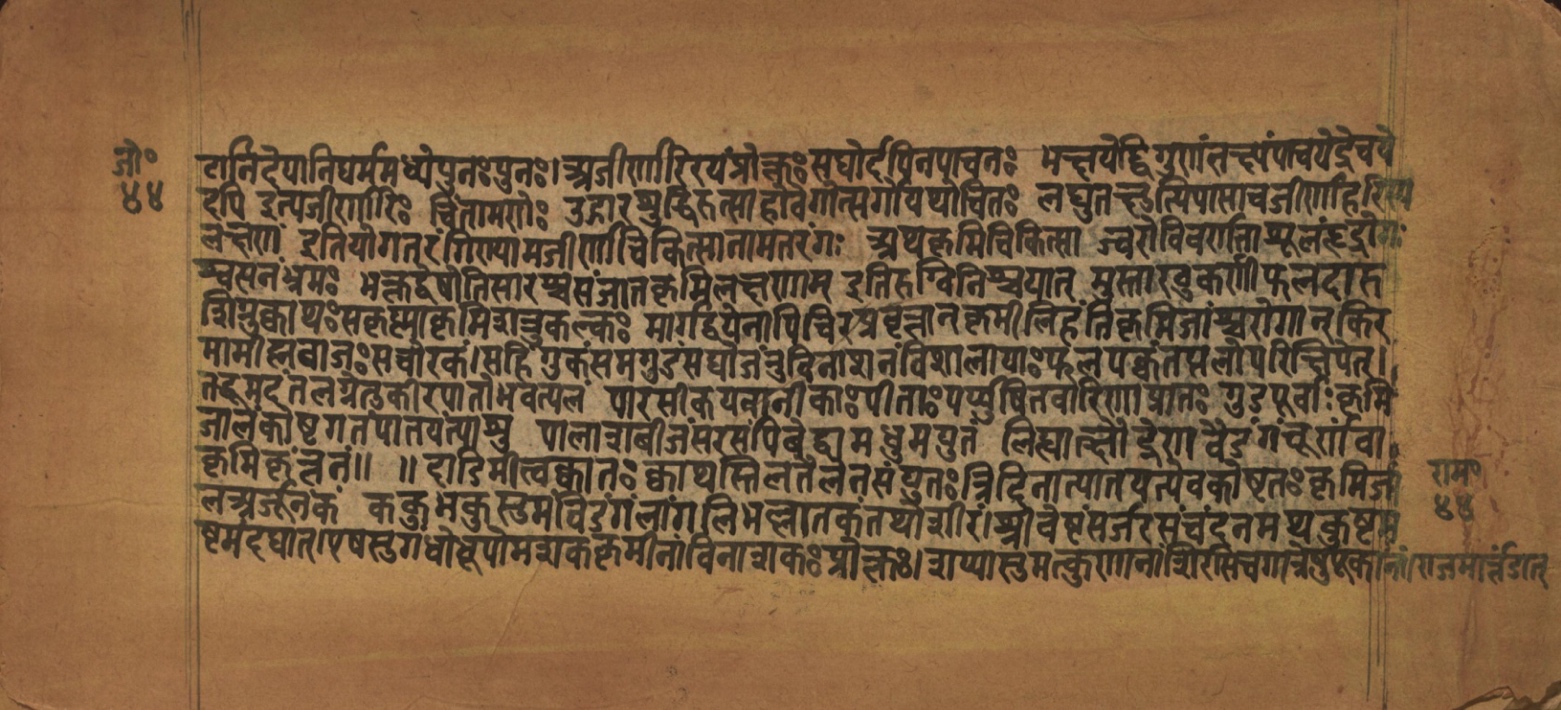 जो॰
४४
टानिदेपानिघर्ममध्येपुनःपुनः।अजीर्णारिरयंप्रोक्तःसद्योदीपनपाचनः भक्षयेद्द्विगुणंतक्ष्यंपाचयेद्रेचये
दपि इत्यजीर्णारिः चिंतामणेः उद्गारशुद्धिरुत्साहोवेगोत्सर्गोयथोचितः लघुतक्षुत्पिपासाचजीर्णाहारस्य
लक्षणं इतियोगतरंगिण्यामजीर्णचिकित्सानामतरंगः अथकृमिचिकित्सा ज्वरोविवर्णताशूलंहृद्रोगः
श्वसनंभ्रमः भक्तद्वेषोतिसारश्चसंजातकृमिलक्षणम् इतिरुग्विनिश्चयात् मुस्ताखुकर्णीफलदारु
शिग्रुक्वाथःसकृष्णाकृमिशत्रुकल्कः मार्गद्वयेनापिचिरप्रवृत्तान्कृमीन्निहंतिकृमिजांश्चरोगान् किर
मानीह्नवाजःसचोरकं।सहिंगुकंसमगुडंसद्योजंतुविनाशनंविशालायाःफलपक्वंतप्तलोपरिक्षिपेत्।
तद्धूमदंतलग्नेतुकीटपातोभवत्यलं पारसीकयवानीकाःपीताःपर्युषितवारिणाप्रातः गुडपूर्वाःकृमि
जालंकोष्टगतंपातयंत्याशु पालाशबीजंसरसंपिबेद्वामधुमयुतं लिह्यात्क्षौद्रेणवैडंगंचूर्णंवा
कृमिकृंतनं॥ ॥ दाडिमीत्वक्वातःक्वाथस्तिलतैलेनसंयुतःत्रिदिनात्पातयत्येवकोष्टतःकृमिजा
लअर्जुनकं ककुभकुस्तुमंविडंगंलांगलिभल्लातकंतथोशीरं।श्रीवेष्टंसर्जरसंचंदनमथकुष्टम
ष्टमंदद्यात्।एषसुगंधोधूपोमशककृमीनांविनाशकःप्रोक्तः। शय्यास्तुमत्कुणानांशिरसिचगात्रेषुयूकानां।राजमार्त्तंडात्
रामः
४४